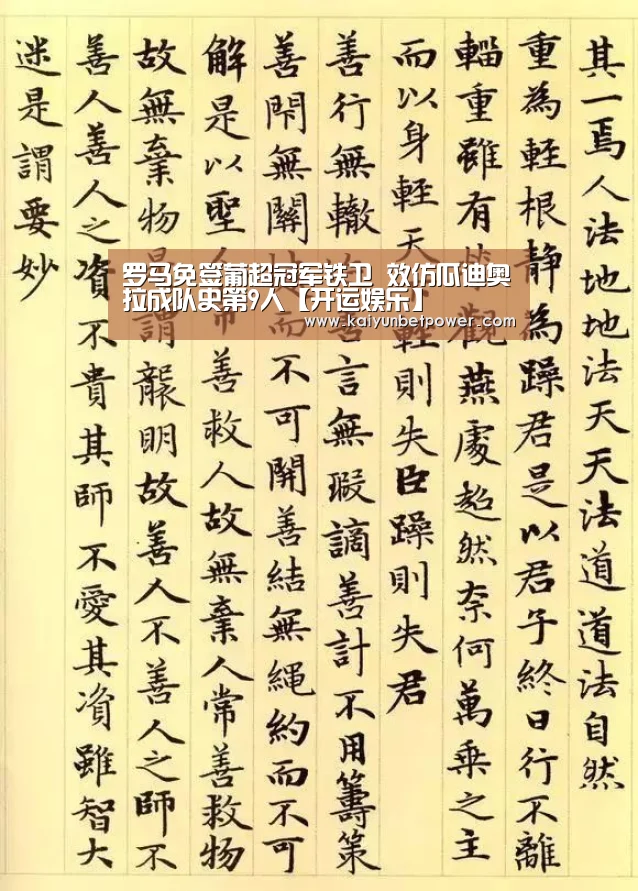 其一焉人法地地法天天法道道法自然
重為輕根靜為躁君是以君子終日行不離
輜重雖有觀燕處超然奈何萬乘之主
而以身輕天輕則失臣躁則失君
善行無轍善言無瑕謫善計不用籌策
善閇無關而不可開善結無繩約而不可
解是以聖人常善救人故無棄人常善救物
故無棄物是謂襲明故善人不善人之師不
善人善人之資不貴其師不愛其資雖智大
迷是謂要妙
罗马免签葡超冠军铁卫 效仿瓜迪奥
拉成队史第9人【开运娱乐】
www.kaiyunbetpower.com